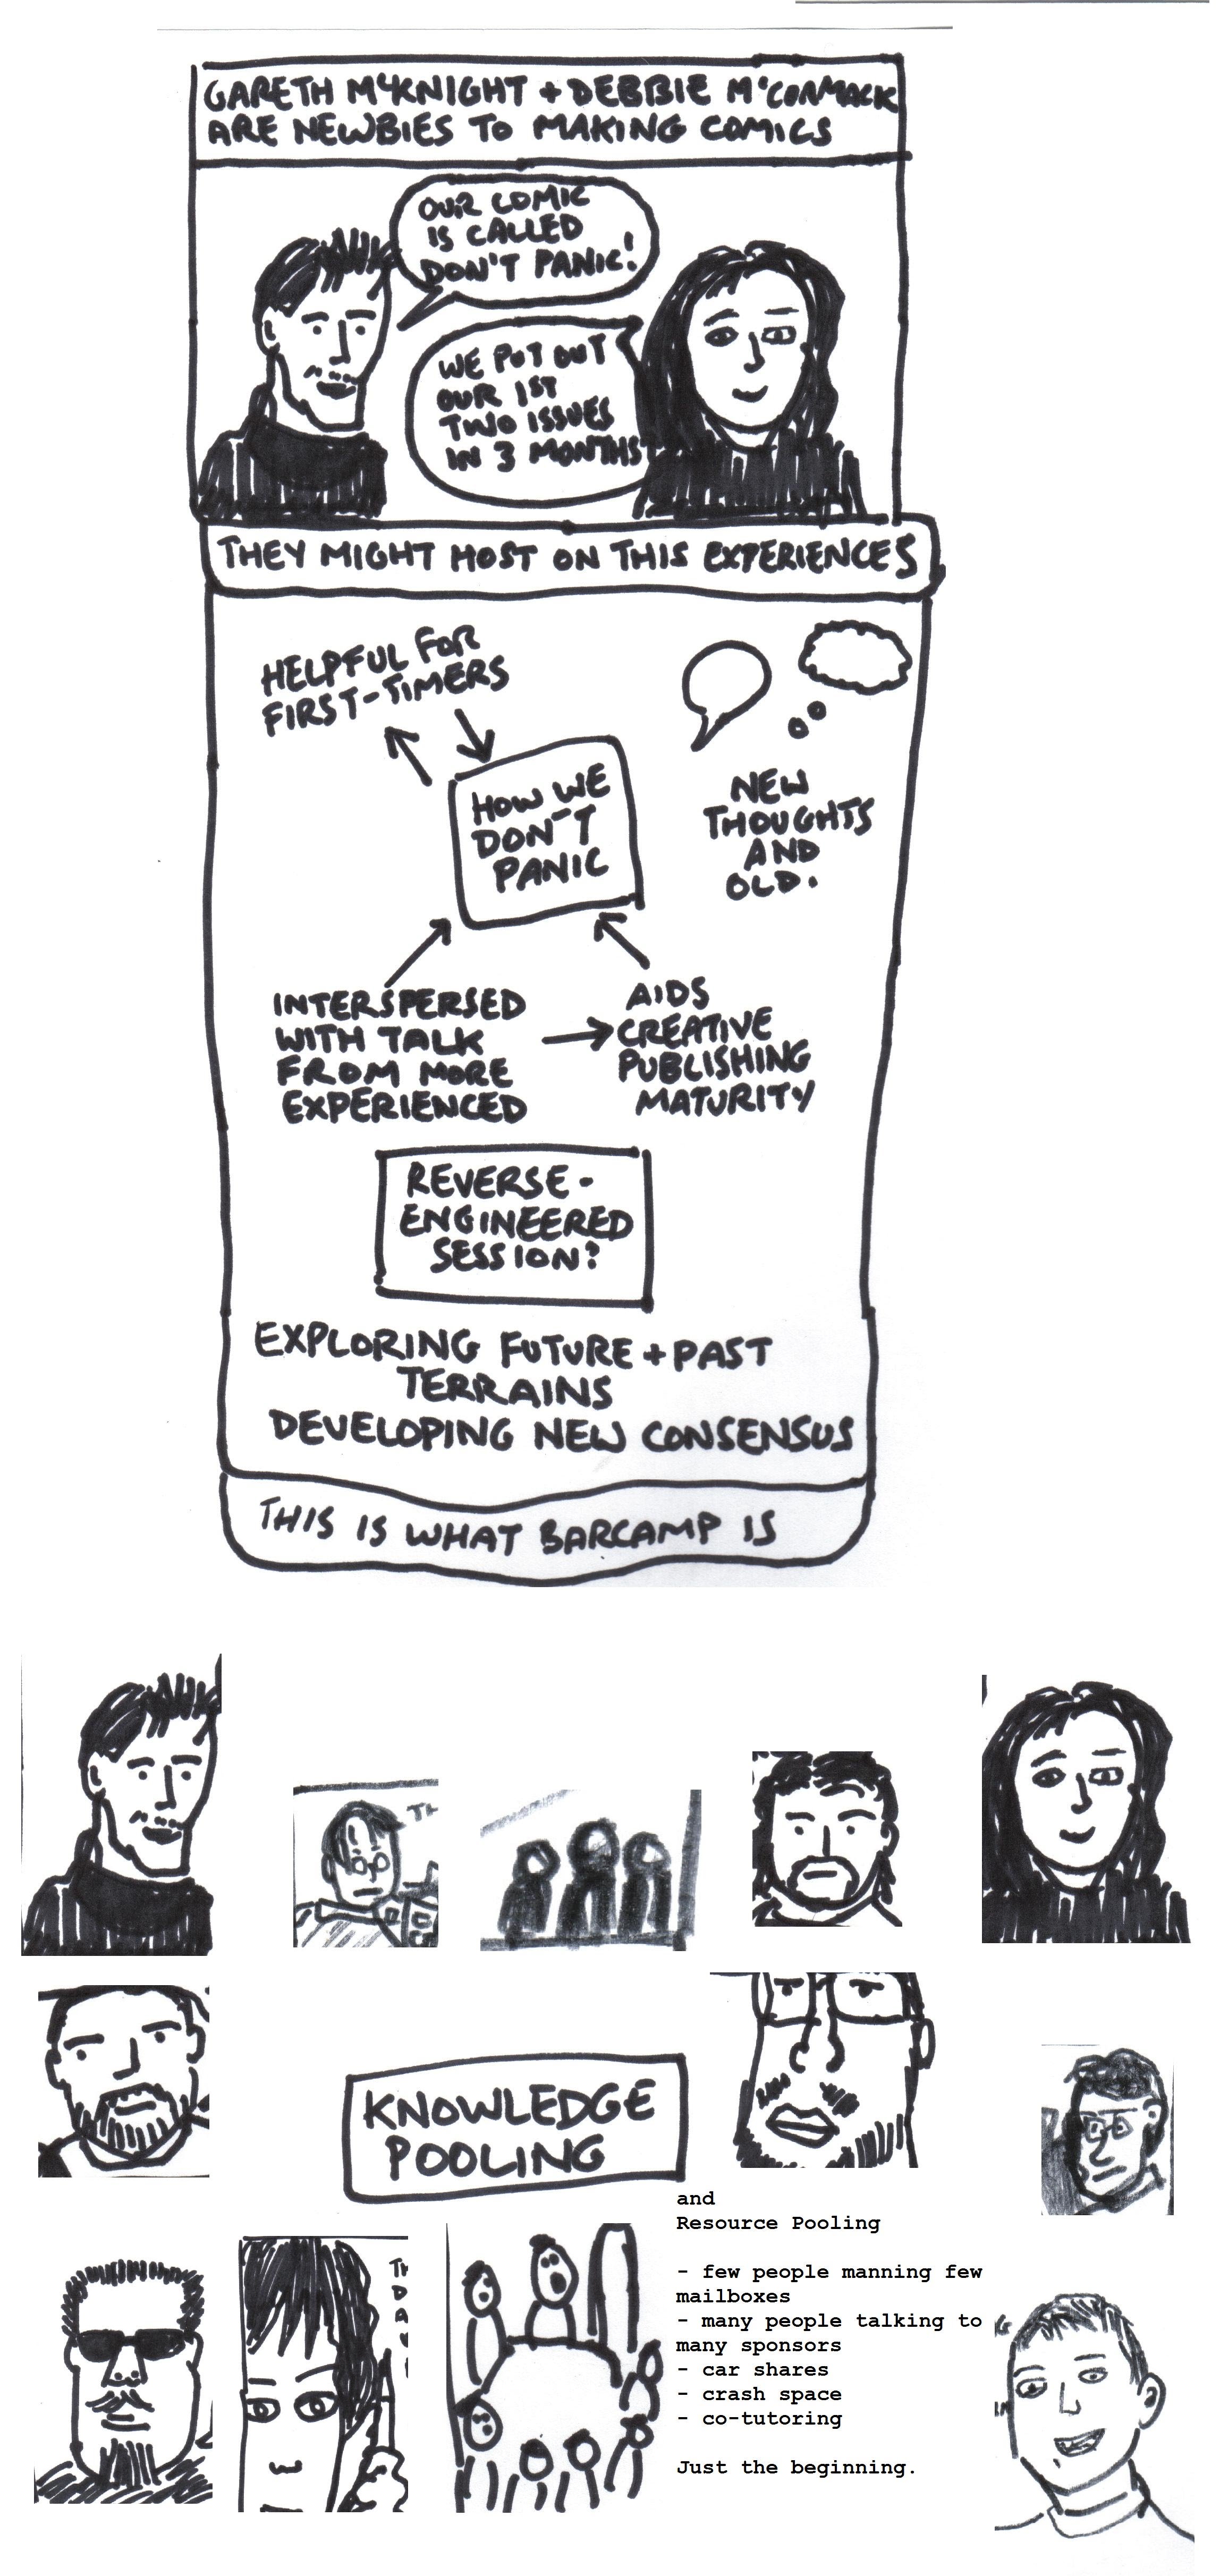 GARETH McKNIGHT + DEBBIE McCORMACK
ARE NEWBIES TO MAKING COMICS
OUR COMIC
IS CALLED
DON'T PANIC!
WE PUT OUT
OUR 1ST
TWO ISSUES
IN 3 MONTHS
THEY MIGHT HOST ON THIS EXPERIENCES
HELPFUL FOR
FIRST-TIMERS
HOW WE
DON'T
PANIC
NEW
THOUGHTS
AND
OLD.
INTERSPERSED
WITH TALK
FROM MORE
EXPERIENCED
AIDS
CREATIVE
PUBLISHING
MATURITY
REVERSE-
ENGINEERED
SESSION?
EXPLORING FUTURE + PAST
TERRAINS
DEVELOPING NEW CONSENSUS
THIS IS WHAT BARCAMP IS
KNOWLEDGE
POOLING
and
Resource Pooling
- few people manning few
mailboxes
- many people talking to
many sponsors
- car shares
- crash space
- co-tutoring
Just the beginning.